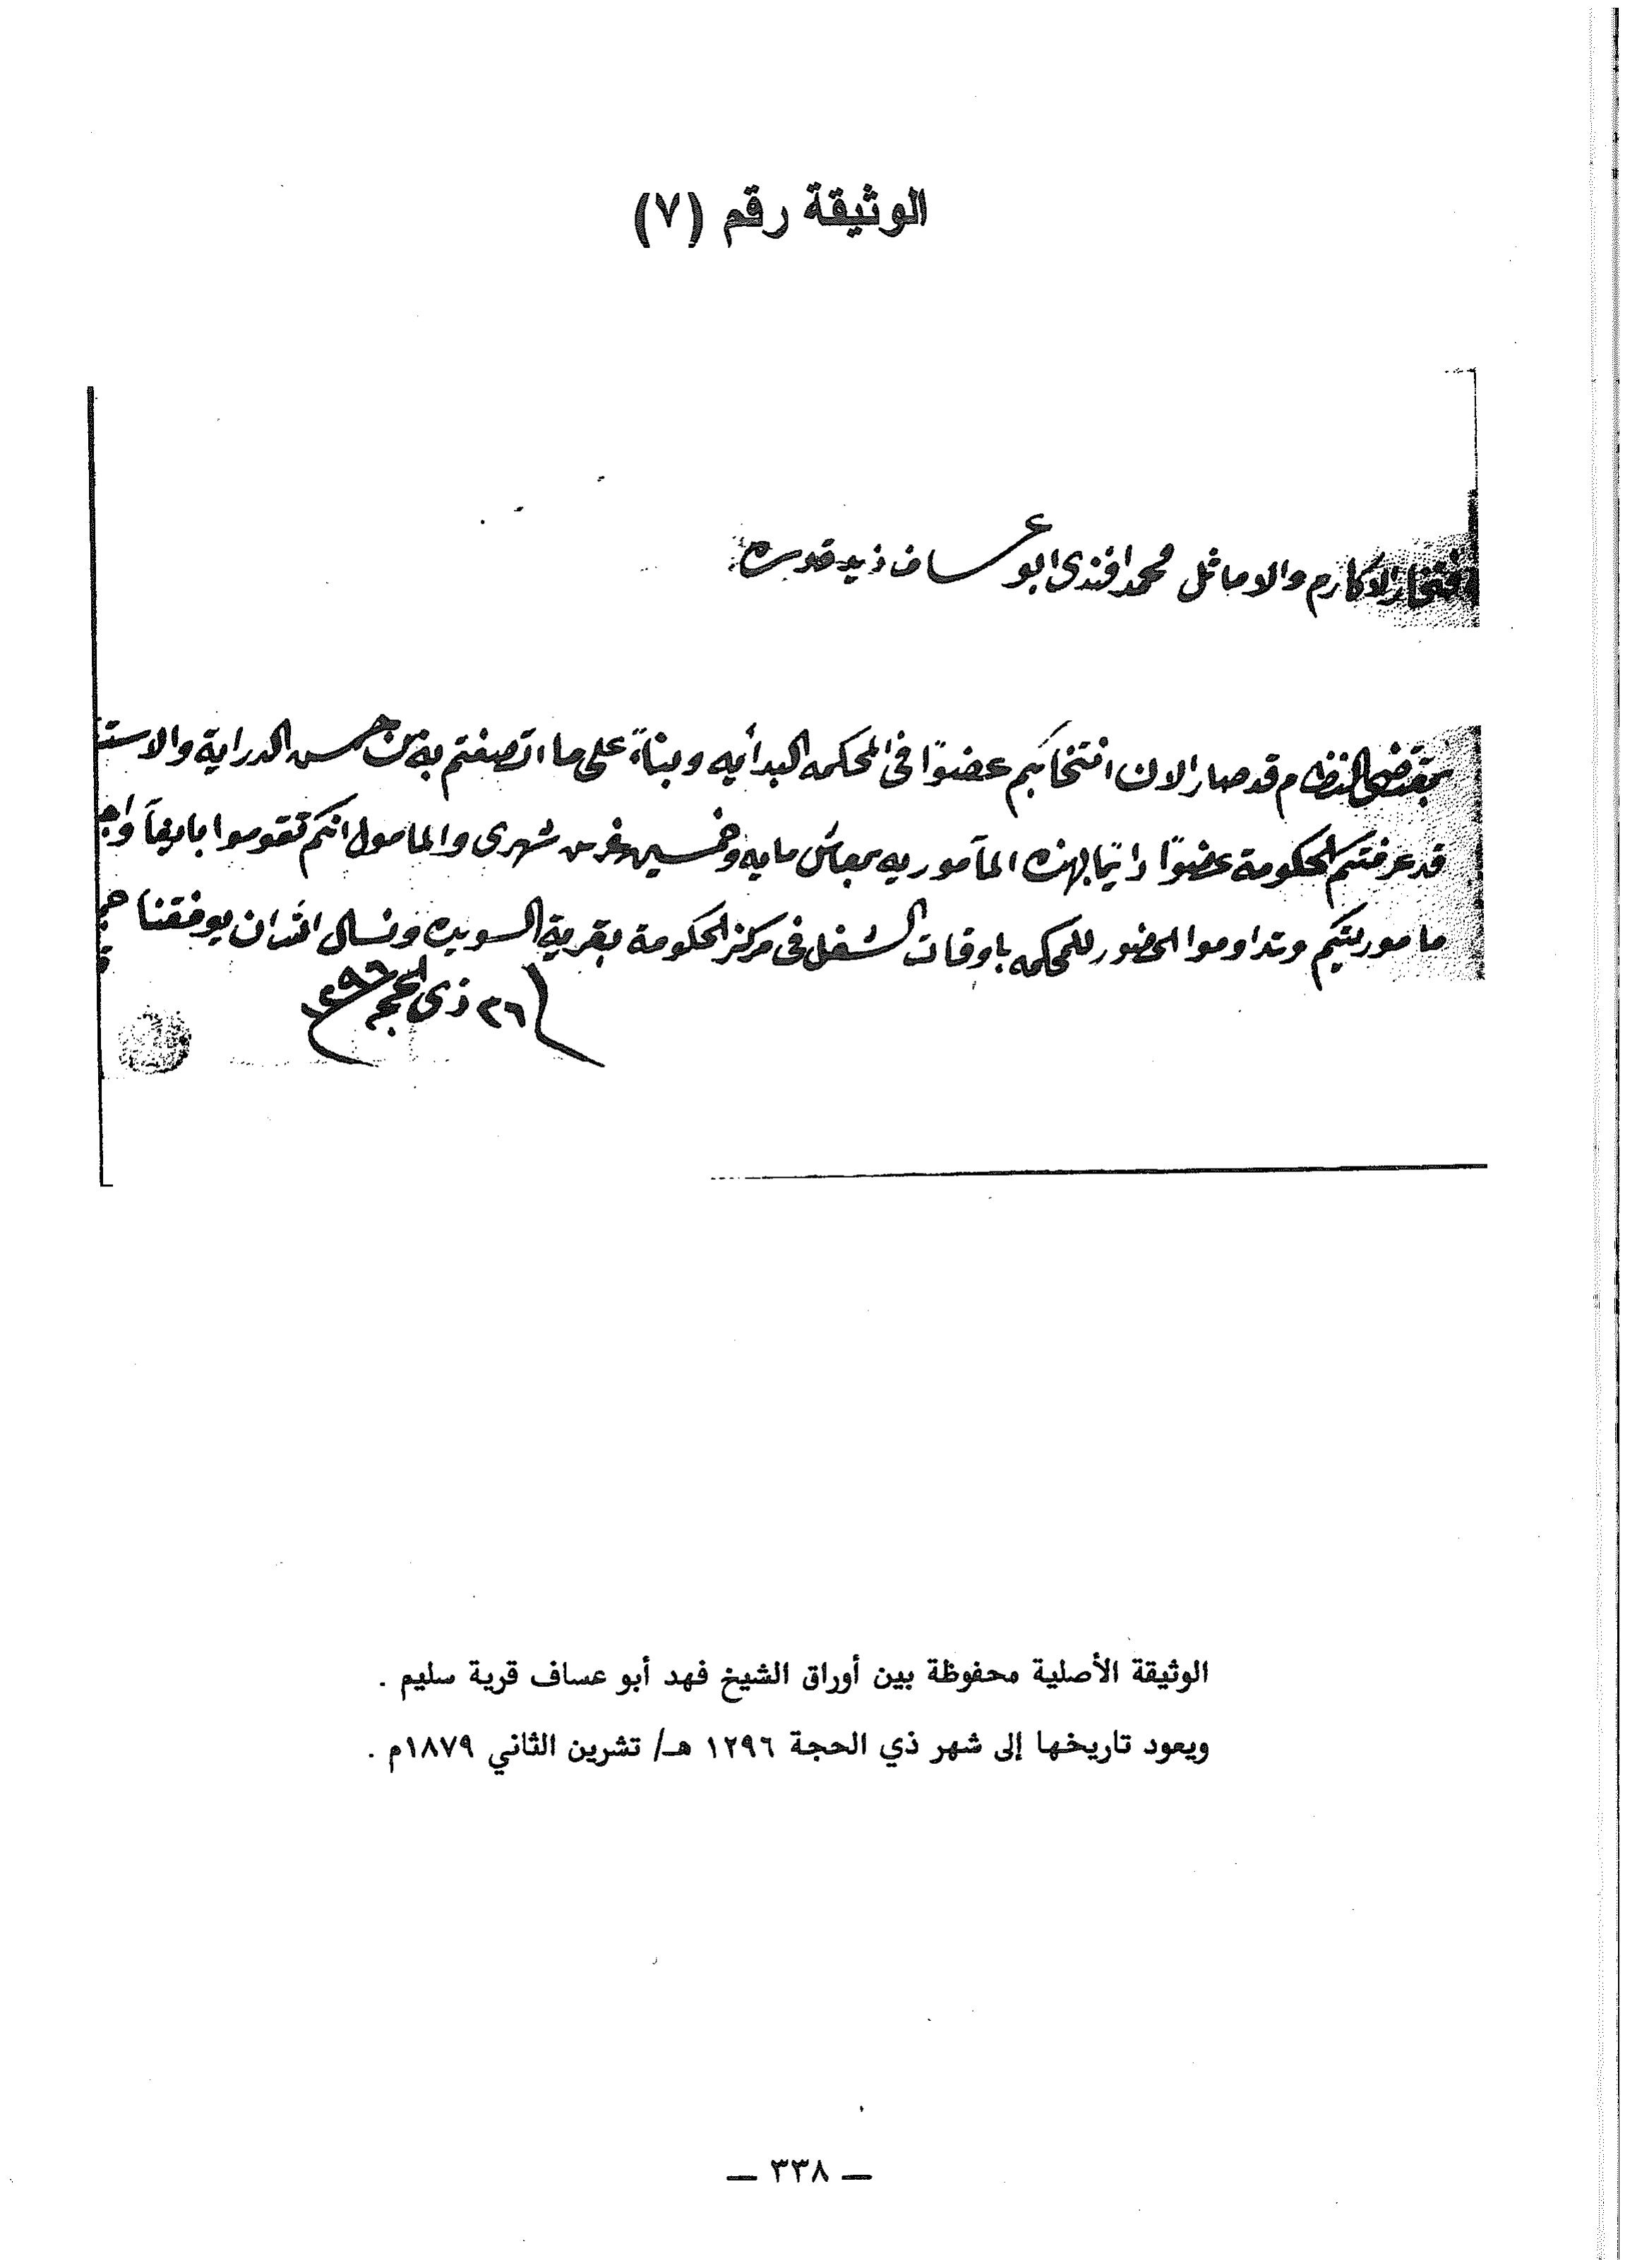 الوثيقة رقم (٧)
افتخار الاكارم والاماثل محمد افندى ابو عساف زيد قدره
بمقتضى النظام قد صار الان انتخابكم عضوًا فى المحكمه البدأيه وبناءً على ما اتصفتم به من حسن الدراية والاستـ
قد عرفتكم الحكومة عضوًا دائمًا بهذه المأموريه بمعاش مايه وخمسين غرش شهرى والمامول انكم تقوموا بايفآ واجـ
ماموريتكم وتداوموا الحضور للمحكمه باوقات الشغل فى مركز الحكومة بقرية السويده ونسال الله ان يوفقنا
٢٦ ذى الحجه ١٢٩٦
الوثيقة الأصلية محفوظة بين أوراق الشيخ فهد أبو عساف قرية سليم .
ويعود تاريخها إلى شهر ذي الحجة ١٢٩٦ هـ/ تشرين الثاني ١٨٧٩م .
— ٣٣٨ —